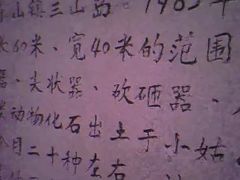 山镇三山岛 1985年
长60米、宽40米的范围
器、尖状器、砍砸器、
动物化石出土于小姑
月二十种左右